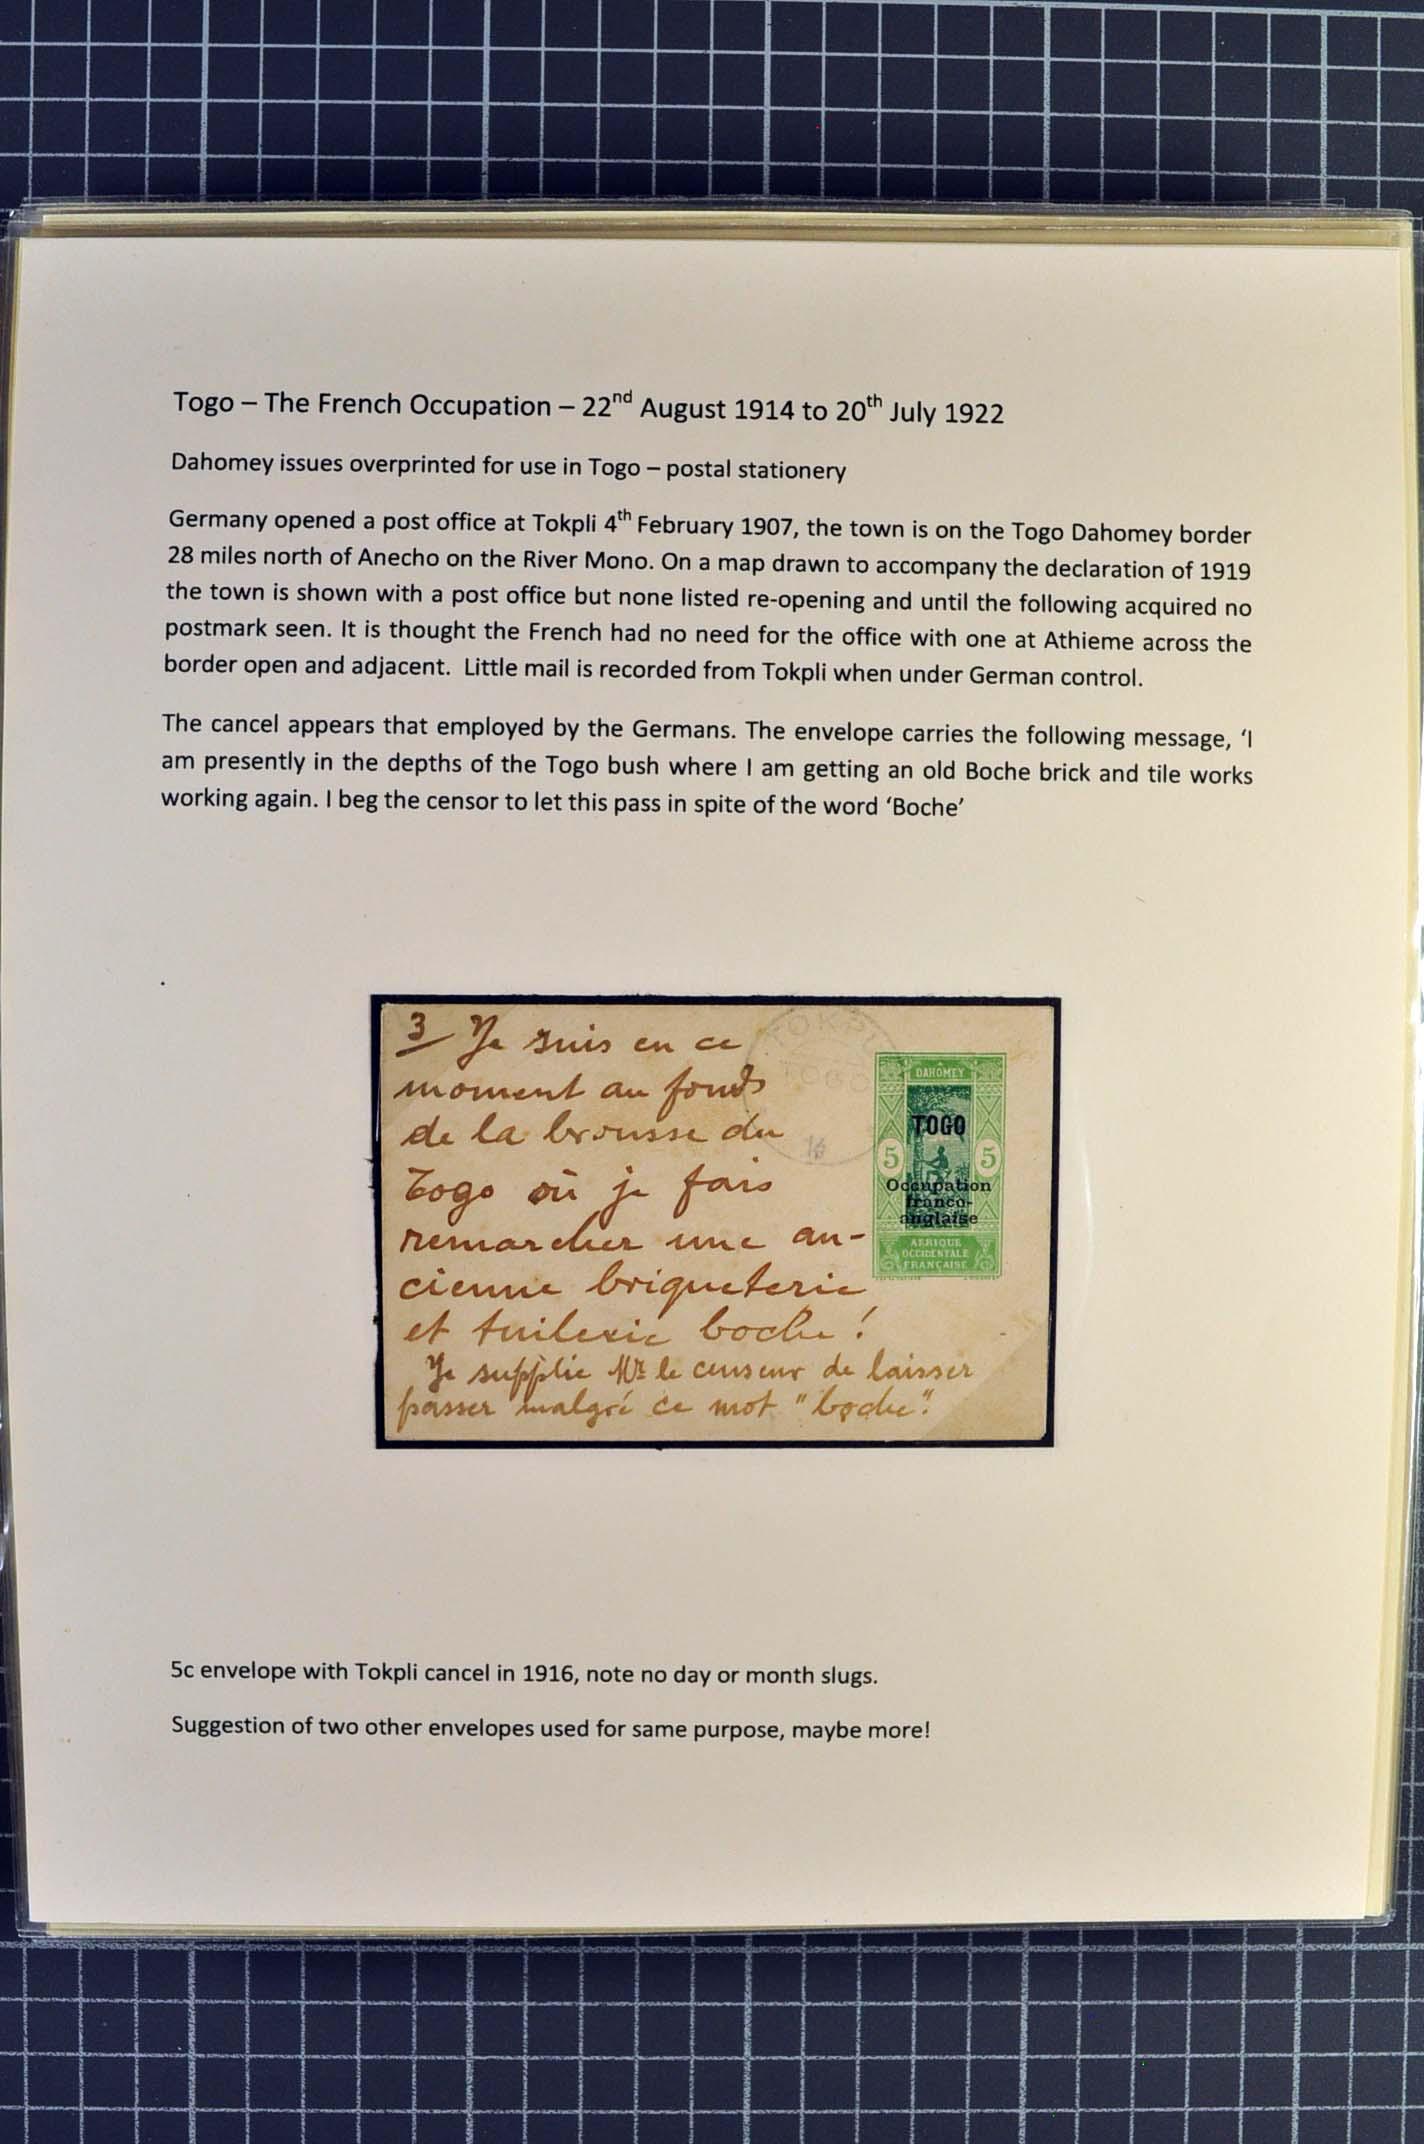 Togo – The French Occupation – 22nd August 1914 to 20th July 1922
Dahomey issues overprinted for use in Togo – postal stationery
Germany opened a post office at Tokpli 4th February 1907, the town is on the Togo Dahomey border
28 miles north of Anecho on the River Mono. On a map drawn to accompany the declaration of 1919
the town is shown with a post office but none listed re-opening and until the following acquired no
postmark seen. It is thought the French had no need for the office with one at Athieme across the
border open and adjacent.  Little mail is recorded from Tokpli when under German control.
The cancel appears that employed by the Germans. The envelope carries the following message, ‘I
am presently in the depths of the Togo bush where I am getting an old Boche brick and tile works
working again. I beg the censor to let this pass in spite of the word ‘Boche’
3 Je suis en ce
moment au fonds
de la brousse du
Togo où je fais
remarcher une an-
cienne briqueterie
et tuilerie boche !
Je supplie Mr le censeur de laisser
passer malgré ce mot "boche".
TOKPLI
TOGO
16
DAHOMEY
TOGO
5 5
Occupation
franco-
anglaise
AFRIQUE
OCCIDENTALE
FRANÇAISE
5c envelope with Tokpli cancel in 1916, note no day or month slugs.
Suggestion of two other envelopes used for same purpose, maybe more!